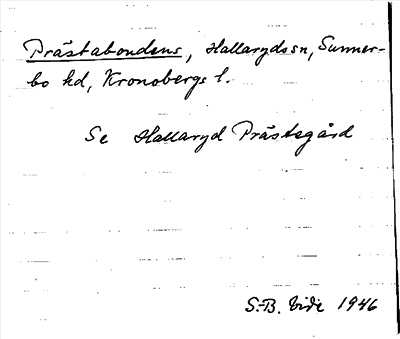 Prästabondens, Hallarydssn, Sunner-
bo hd, Kronobergs l.
Se Hallaryd Prästgård
S.-B. Vide 1946